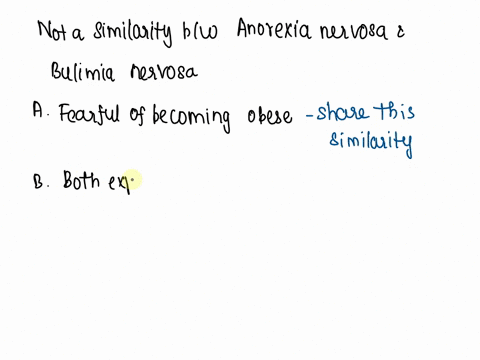 Not a similarity b/w Anorexia nervosa &
Bulimia nervosa
A. Fearful of becoming obese - share this
similarity
B. Both exp